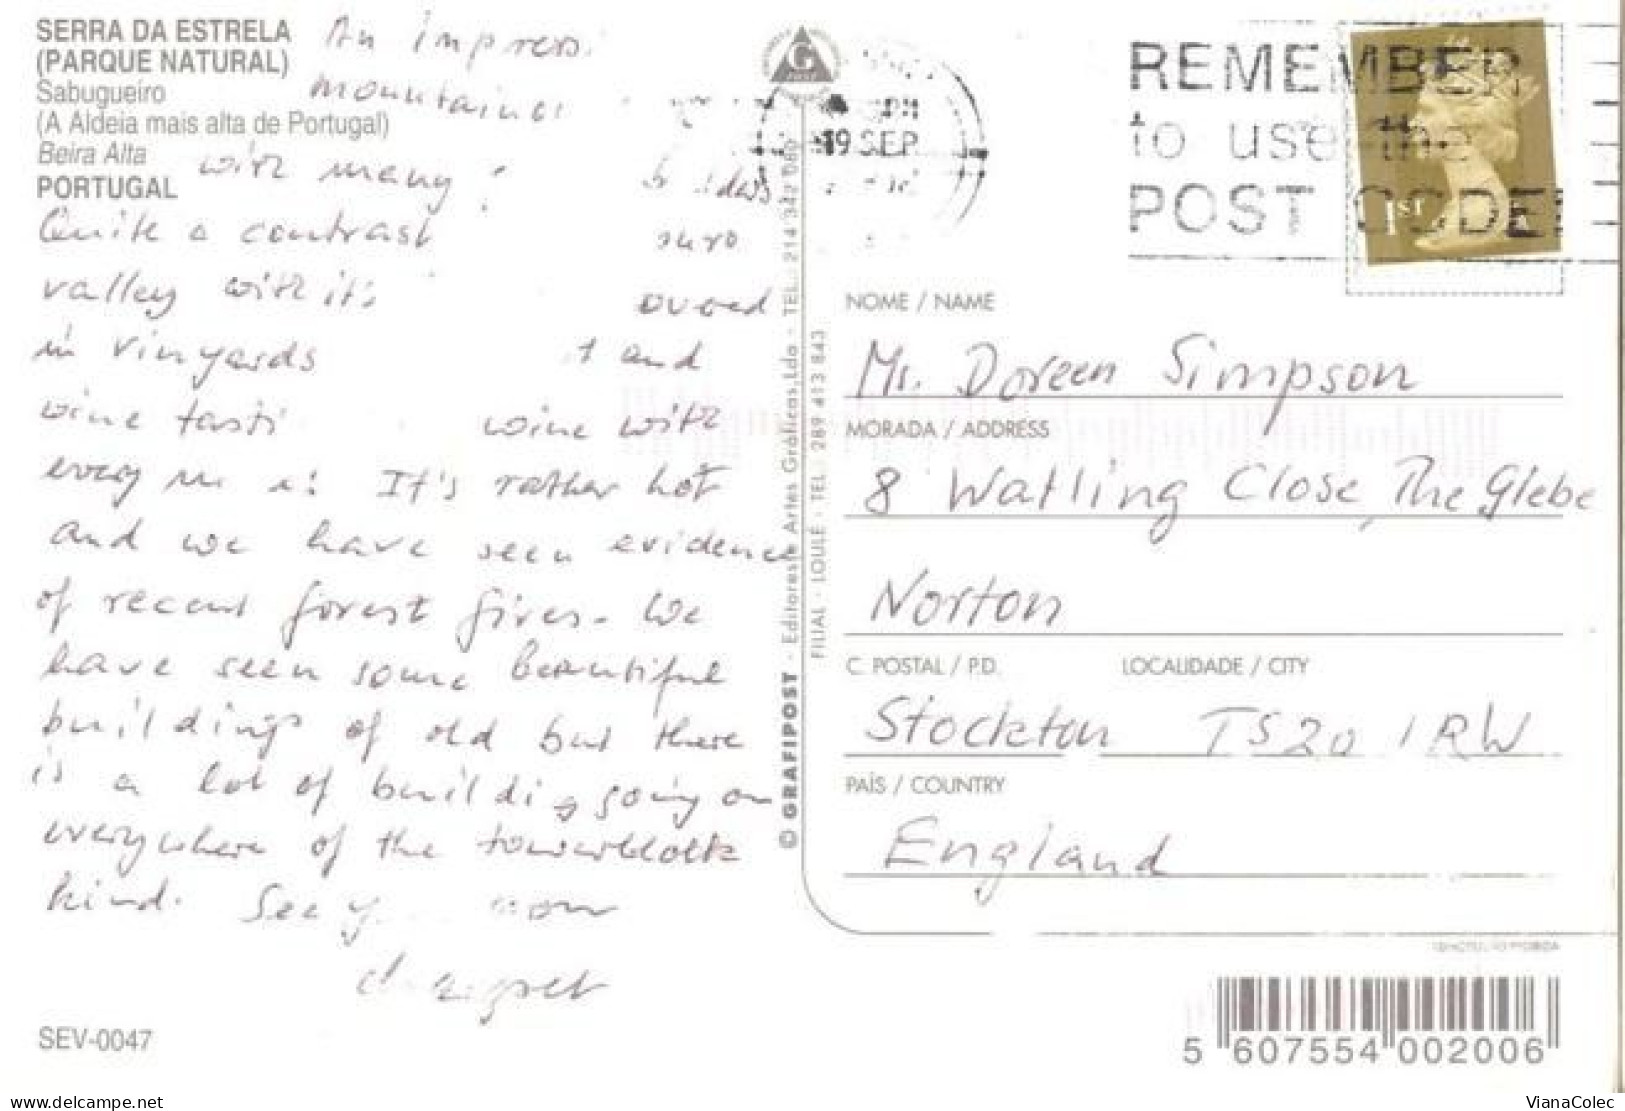 SERRA DA ESTRELA
(PARQUE NATURAL)
Sabugueiro
(A Aldeia mais alta de Portugal)
Beira Alta
PORTUGAL
An
with many
Quite a contrast
valley with it's
in vinyards and
wine wine with
every It's rather hot
and we have seen evidence
of recent forest fires. We
have seen some beautiful
buildings of old but there
is a lot of building going on
everywhere of the towerblock
kind. See
SEV-0047
© GRAFIPOST - Editores e Artes Gráficas, Lda - TEL.: 214 342 080
FILIAL - LOULÉ - TEL.: 289 413 843
19 SEP
REMEMBER
to use the
POST CODE
1ST
NOME / NAME
Mrs. Doreen Simpson
MORADA / ADDRESS
8 Watling Close, The Glebe
Norton
C. POSTAL / P.D. LOCALIDADE / CITY
Stockton TS20 1RW
PAÍS / COUNTRY
England
5 607554 002006
delcampe.net
VianaColec